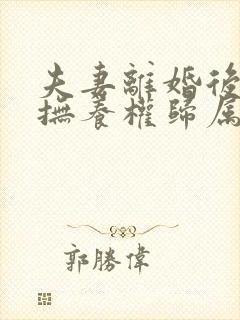 夫妻離婚後
撫養權歸属
郭勝偉